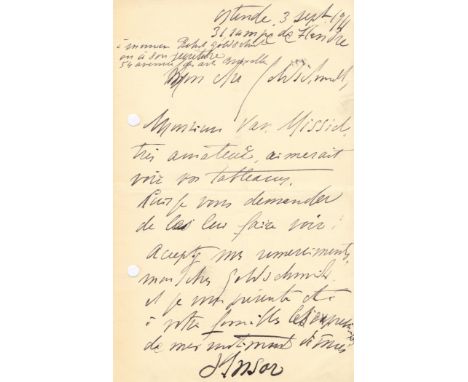 Ostende 3 sept
rampe de Flandre
à monsieur Robert Goldschmidt
ou à son secrétaire
54 avenue des arts Bruxelles
Mon cher Goldschmidt,
Monsieur Van Missiel,
très amateur, aimerait
voir vos tableaux.
Puis je vous demander
de les leur faire voir?
Acceptez mes remerciements,
mon cher Goldschmidt
et je vous présente
à votre famille
de mes sentiments
Ensor